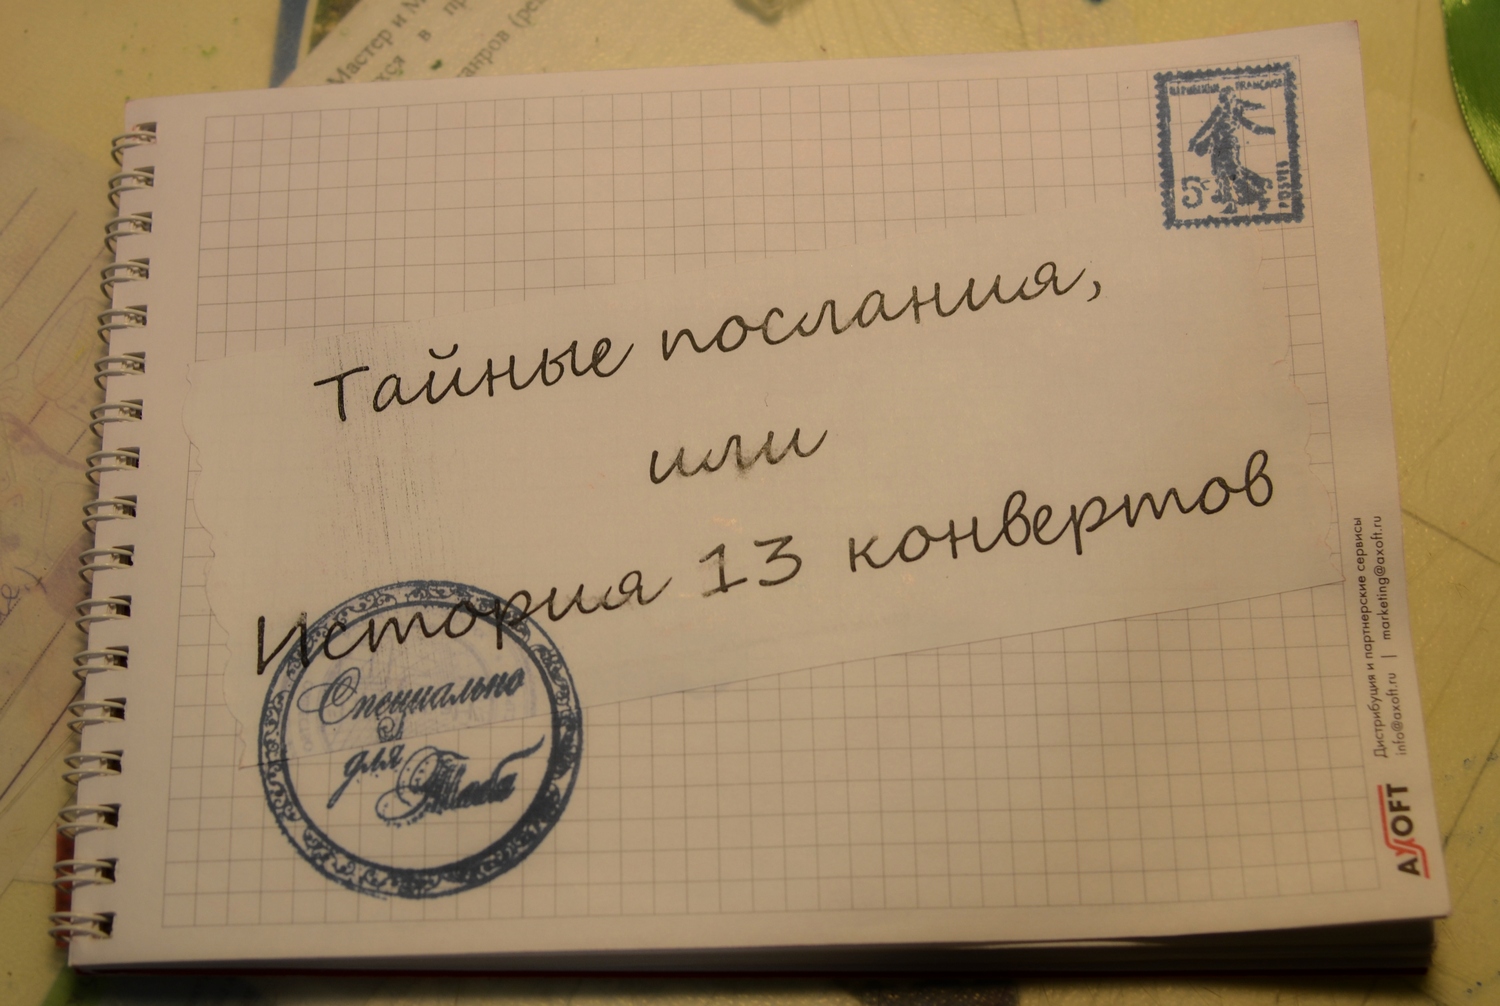 Мастер и М
в пр
REPUBLIQUE FRANÇAISE
5c
POSTES
Тайные послания,
или
История 13 конвертов
Специально
для
Тебя
Дистрибуция и партнерские сервисы
info@axoft.ru | marketing@axoft.ru
AXOFT